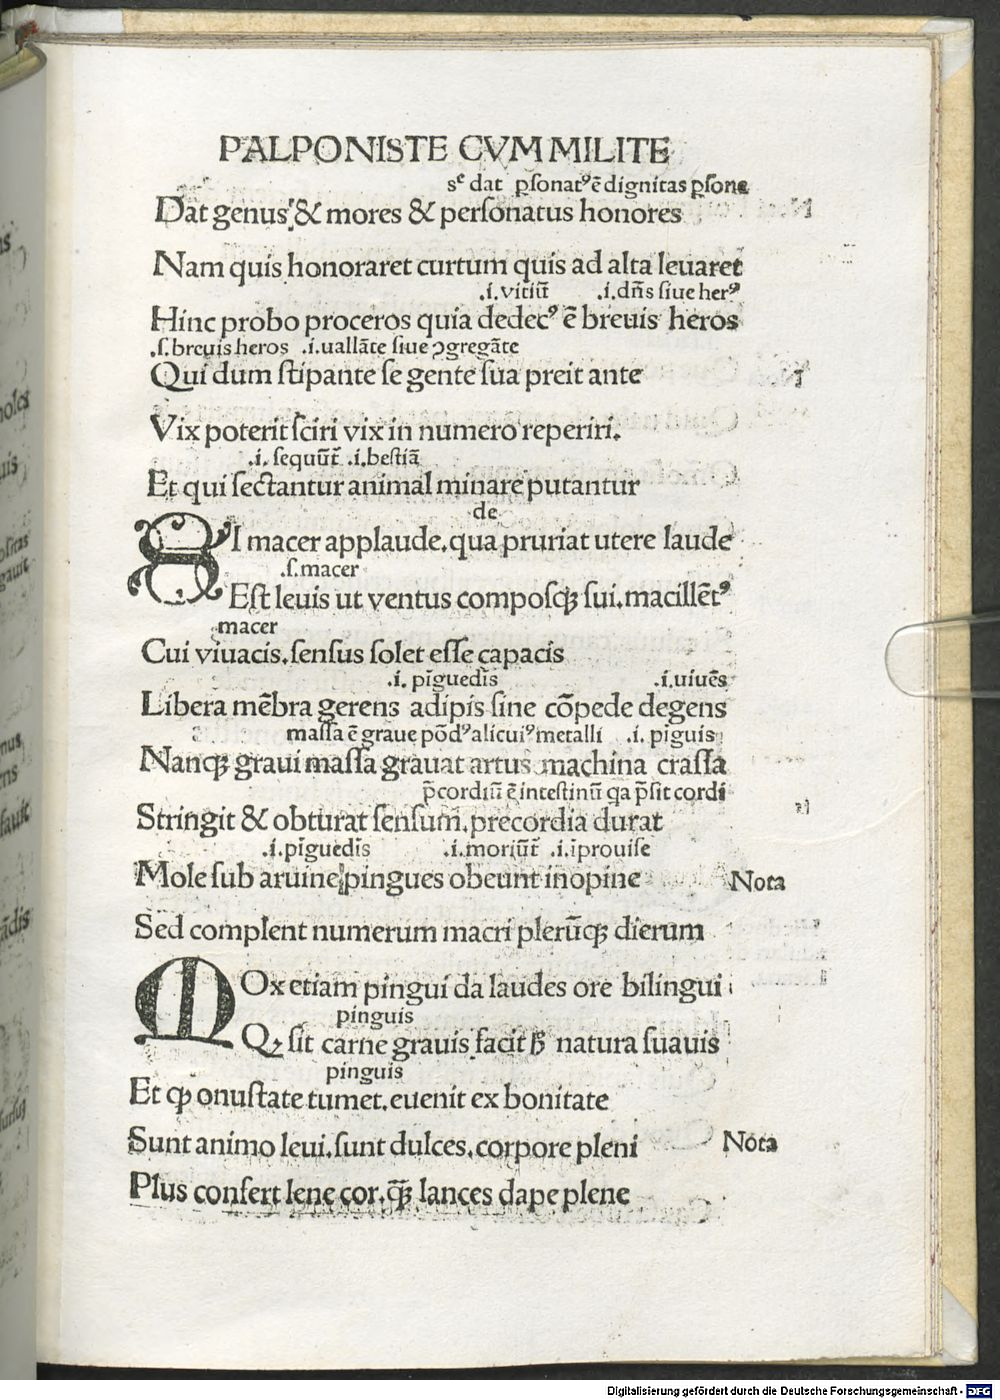 PALPONISTE CVM MILITE
sᵉ dat ꝑsonatꝰ ē dignitas ꝑsone
Dat genus & mores & perſonatus honores
Nam quis honoraret curtum quis ad alta leuaret
.i. vitiū̄ .i. dn̄s ſiue herꝰ
Hinc probo proceros quia dedecꝰ ē breuis heros
.ſ. breuis heros .i. uallāte ſiue ꝯgregāte
Qui dum ſtipante ſe gente ſua preit ante
Vix poterit ſciri vix in numero reperiri.
.i. ſequūt̄ .i. beſtiā
Et qui ſectantur animal minare putantur
de
SI macer applaude. qua pruriat utere laude
.ſ. macer
Eſt leuis ut ventus compoſꝗꝫ ſui. macillēt̄ꝰ
macer
Cui viuacis. ſenſus ſolet eſſe capacis
.i. pīguedīs .i. uiuēs
Libera mēbra gerens adipis ſine cōpede degens
maſſa ē graue pōdꝰ alicuiꝰ metalli .i. pīguis
Nanꝗꝫ graui maſſa grauat artus machina craſſa
p̄cordiū ē inteſtinū qa p̄ſit cordi
Stringit & obturat ſenſum. precordia durat
.i. pīguedīs .i. moriūt̄ .i. īprouiſe
Mole ſub aruine pingues obeunt inopine
Nota
Sed complent numerum macri plerūꝗꝫ dierum
MOx etiam pingui da laudes ore bilingui
pinguis
Qꝫ ſit carne grauis facit ħ natura ſuauis
pinguis
Et ꝙ onuſtate tumet. euenit ex bonitate
Sunt animo leui. ſunt dulces. corpore pleni
Nota
Plus confert lene cor. ꝗ̄ꝫ lances dape plene
Digitalisierung gefördert durch die Deutsche Forschungsgemeinschaft - DFG